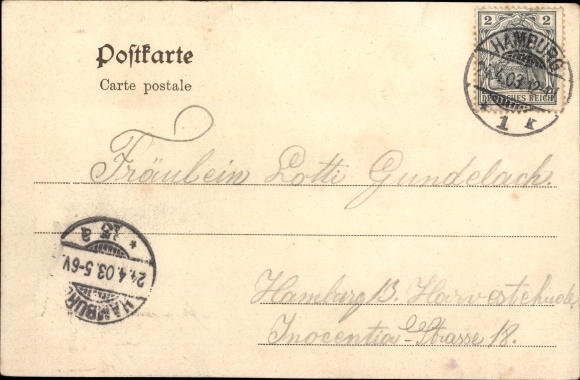 Postkarte
Carte postale
2 2
DEUTSCHES REICH
HAMBURG
4.03. 12-
* 1 k
Fräulein Lotti Gundelach.
Hamburg 13. Harvestehude,
Inocentia-Strasse 18.
HAMBURG
24.4.03. 5-6V.
* 13 a